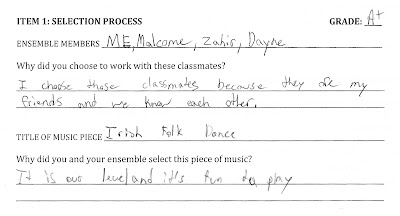 ITEM 1: SELECTION PROCESS GRADE: A+
ENSEMBLE MEMBERS ME, Malcome, Zahir, Dayne
Why did you choose to work with these classmates?
I choose those classmates because they are my
friends and we know each other.
TITLE OF MUSIC PIECE Irish Folk Dance
Why did you and your ensemble select this piece of music?
It is our level and it's fun to play